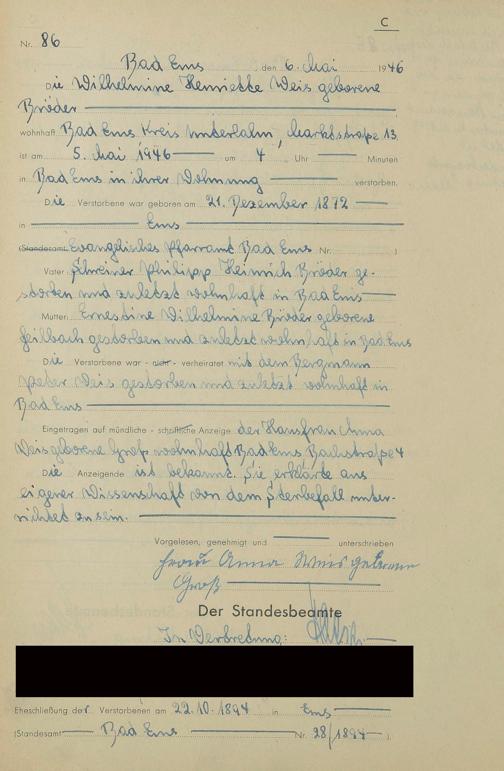 C
Nr. 86
Bad Ems, den 6. Mai 1946
Die Wilhelmine Henriette Weis geborene
Bröder
wohnhaft Bad Ems Kreis Unterlahn, Marktstraße 13
ist am 5. Mai 1946 um 4 Uhr Minuten
in Bad Ems in ihrer Wohnung verstorben.
Die Verstorbene war geboren am 21. Dezember 1872
in Ems
(Standesamt Evangelisches Pfarramt Bad Ems Nr. )
Vater: Schreiner Philipp Heinrich Bröder ge-
storben und zuletzt wohnhaft in Bad Ems
Mutter: Ernestine Wilhelmine Bröder geborene
Heilbach gestorben und zuletzt wohnhaft in Bad Ems
Die Verstorbene war - nicht - verheiratet mit dem Bergmann
Peter Weis gestorben und zuletzt wohnhaft in
Bad Ems
Eingetragen auf mündliche - schriftliche Anzeige der Hausfrau Anna
Weis geborene Groß wohnhaft Bad Ems Bachstraße 4
Die Anzeigende ist bekannt. Sie erklärte aus
eigener Wissenschaft von dem Sterbefall unter-
richtet zu sein.
Vorgelesen, genehmigt und unterschrieben
Frau Anna Weis geborene
Groß
Der Standesbeamte
In Vertretung:
Eheschließung der Verstorbenen am 22.10.1894 in Ems
(Standesamt Bad Ems Nr. 28/1894 )